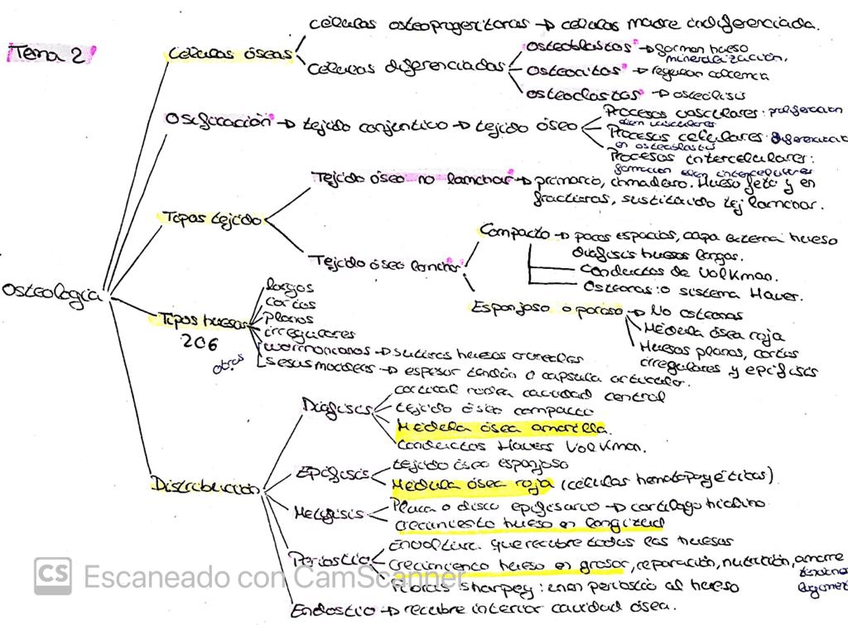 Tema 2
Osteología
Células óseas
células osteoprogenitoras → células madre indiferenciada.
células diferenciadas
Osteoblastos → forman hueso
mineralización,
Osteocitos → regulan calcemia
osteoclastos → osteólisis
Osificación → tejido conjuntivo → tejido óseo
Procesos vasculares: proliferación
Procesos celulares: diferenciación
en osteoblastos
Procesos intercelulares:
formación intercelulares
Tipos tejido
Tejido óseo no laminar → primario, inmaduro. Hueso feto y en
fracturas, sustituido tej laminar.
Tejido óseo laminar
Compacto → pocos espacios, capa externa hueso
diáfisis huesos largos.
conductos de Volkman.
Osteonas: o sistema Havers.
Esponjoso o poroso → No osteonas
Médula ósea roja
Huesos planos, cortos
irregulares y epífisis
Tipos huesos
206
largos
cortos
planos
irregulares
wormianos → suturas huesos craneales
otros
sesamoideos → espesor tendón o capsula articular.
Distribución
Diáfisis
cortical rodea cavidad central
tejido óseo compacto
Médula ósea amarilla.
conductos Havers Volkman.
Epífisis
tejido óseo esponjoso
Médula ósea roja (células hematopoyéticas)
Metáfisis
Placa o disco epifisario → cartílago hialino
crecimiento hueso en longitud
Periostio
Envoltura que recubre todos los huesos
crecimiento hueso en grosor, reparación, nutrición, amarre
tendones
Fibras sharpey: unen periostio al hueso
Endostio → recubre interior cavidad ósea.
CS Escaneado con CamScanner